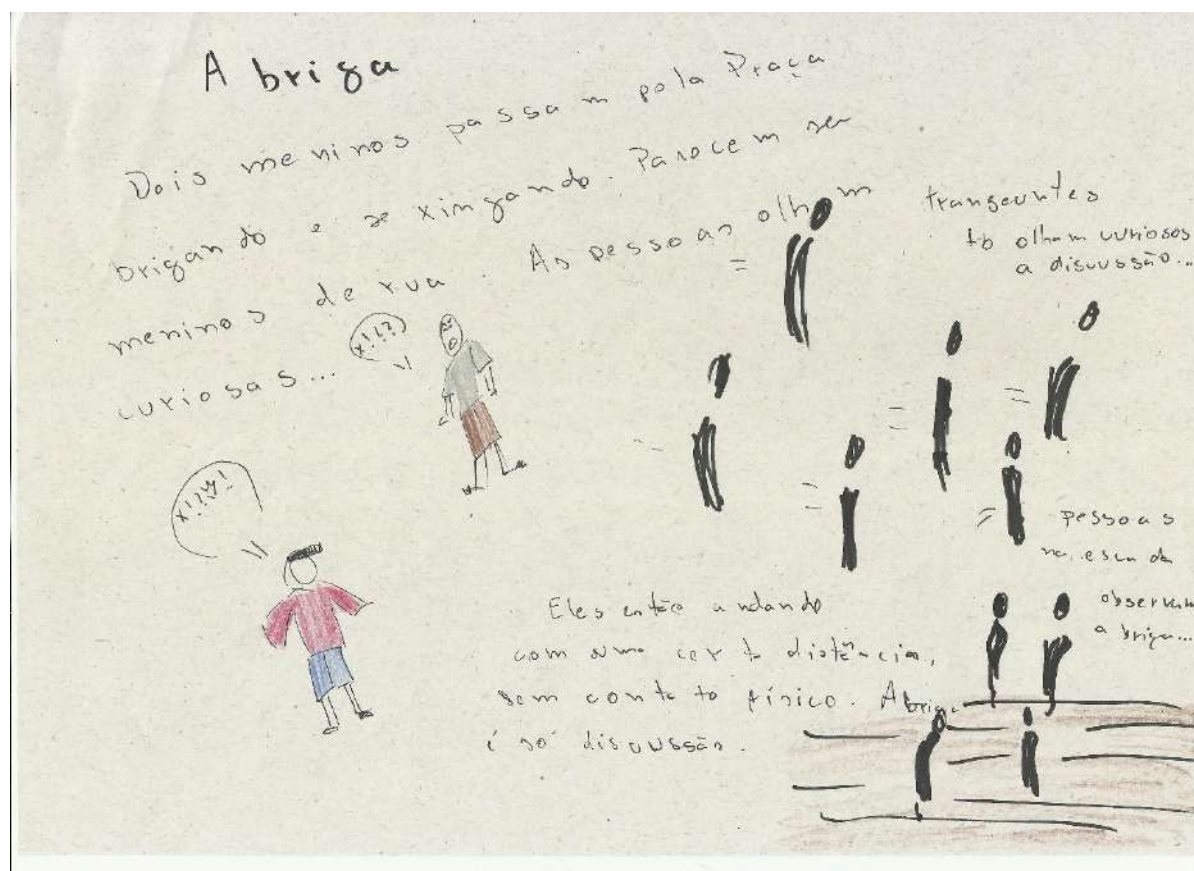 A briga
Dois meninos passam pela Praça
brigando e se xingando. Parecem ser
meninos de rua. As pessoas olham
curiosas...
transeuntes
tb olham curiosos
a discussão...
x!¿?!
pessoas
na escada
observam
a briga...
Eles estão andando
com uma certa distância,
sem contato físico. A briga
é só discussão.